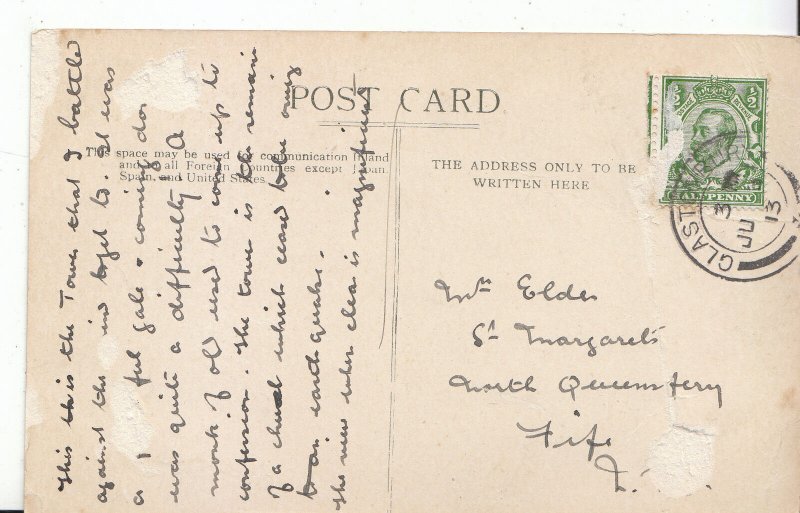 POST CARD
This space may be used for communication Inland
and to all Foreign Countries except Japan.
Spain, and United States.
THE ADDRESS ONLY TO BE
WRITTEN HERE
HALFPENNY
GLAST
JU
13
Elder
St Margaret's
North Queensferry
Fife
This is the Tower that I battled
against the wind to get to. It was
a ful gale & coming down
was quite a difficulty A
monk of old used to come up to
confession. The tower is the remains
of a church which ceased to be owing
to an earthquake.
The view when clear is magnificent